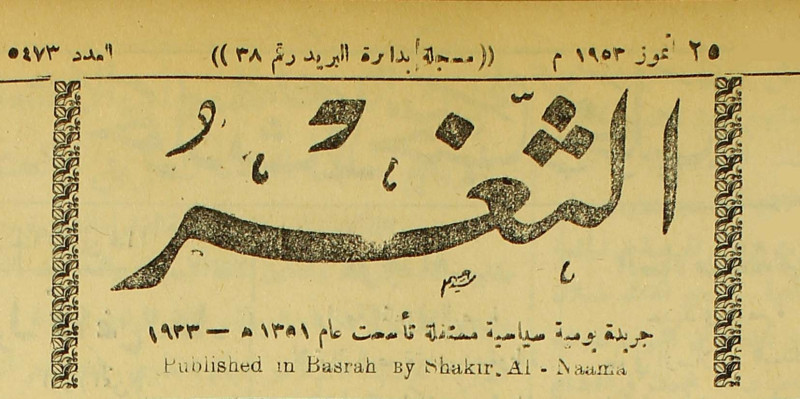 ٢٥ تموز ١٩٥٣ م ((مسجلة بدائرة البريد رقم ٣٨)) العدد ٥٤٧٣
الثغر
جريدة يومية سياسية مستقلة تأسست عام ١٣٥١ ه — ١٩٣٣
Published in Basrah By Shakir. Al - Naama